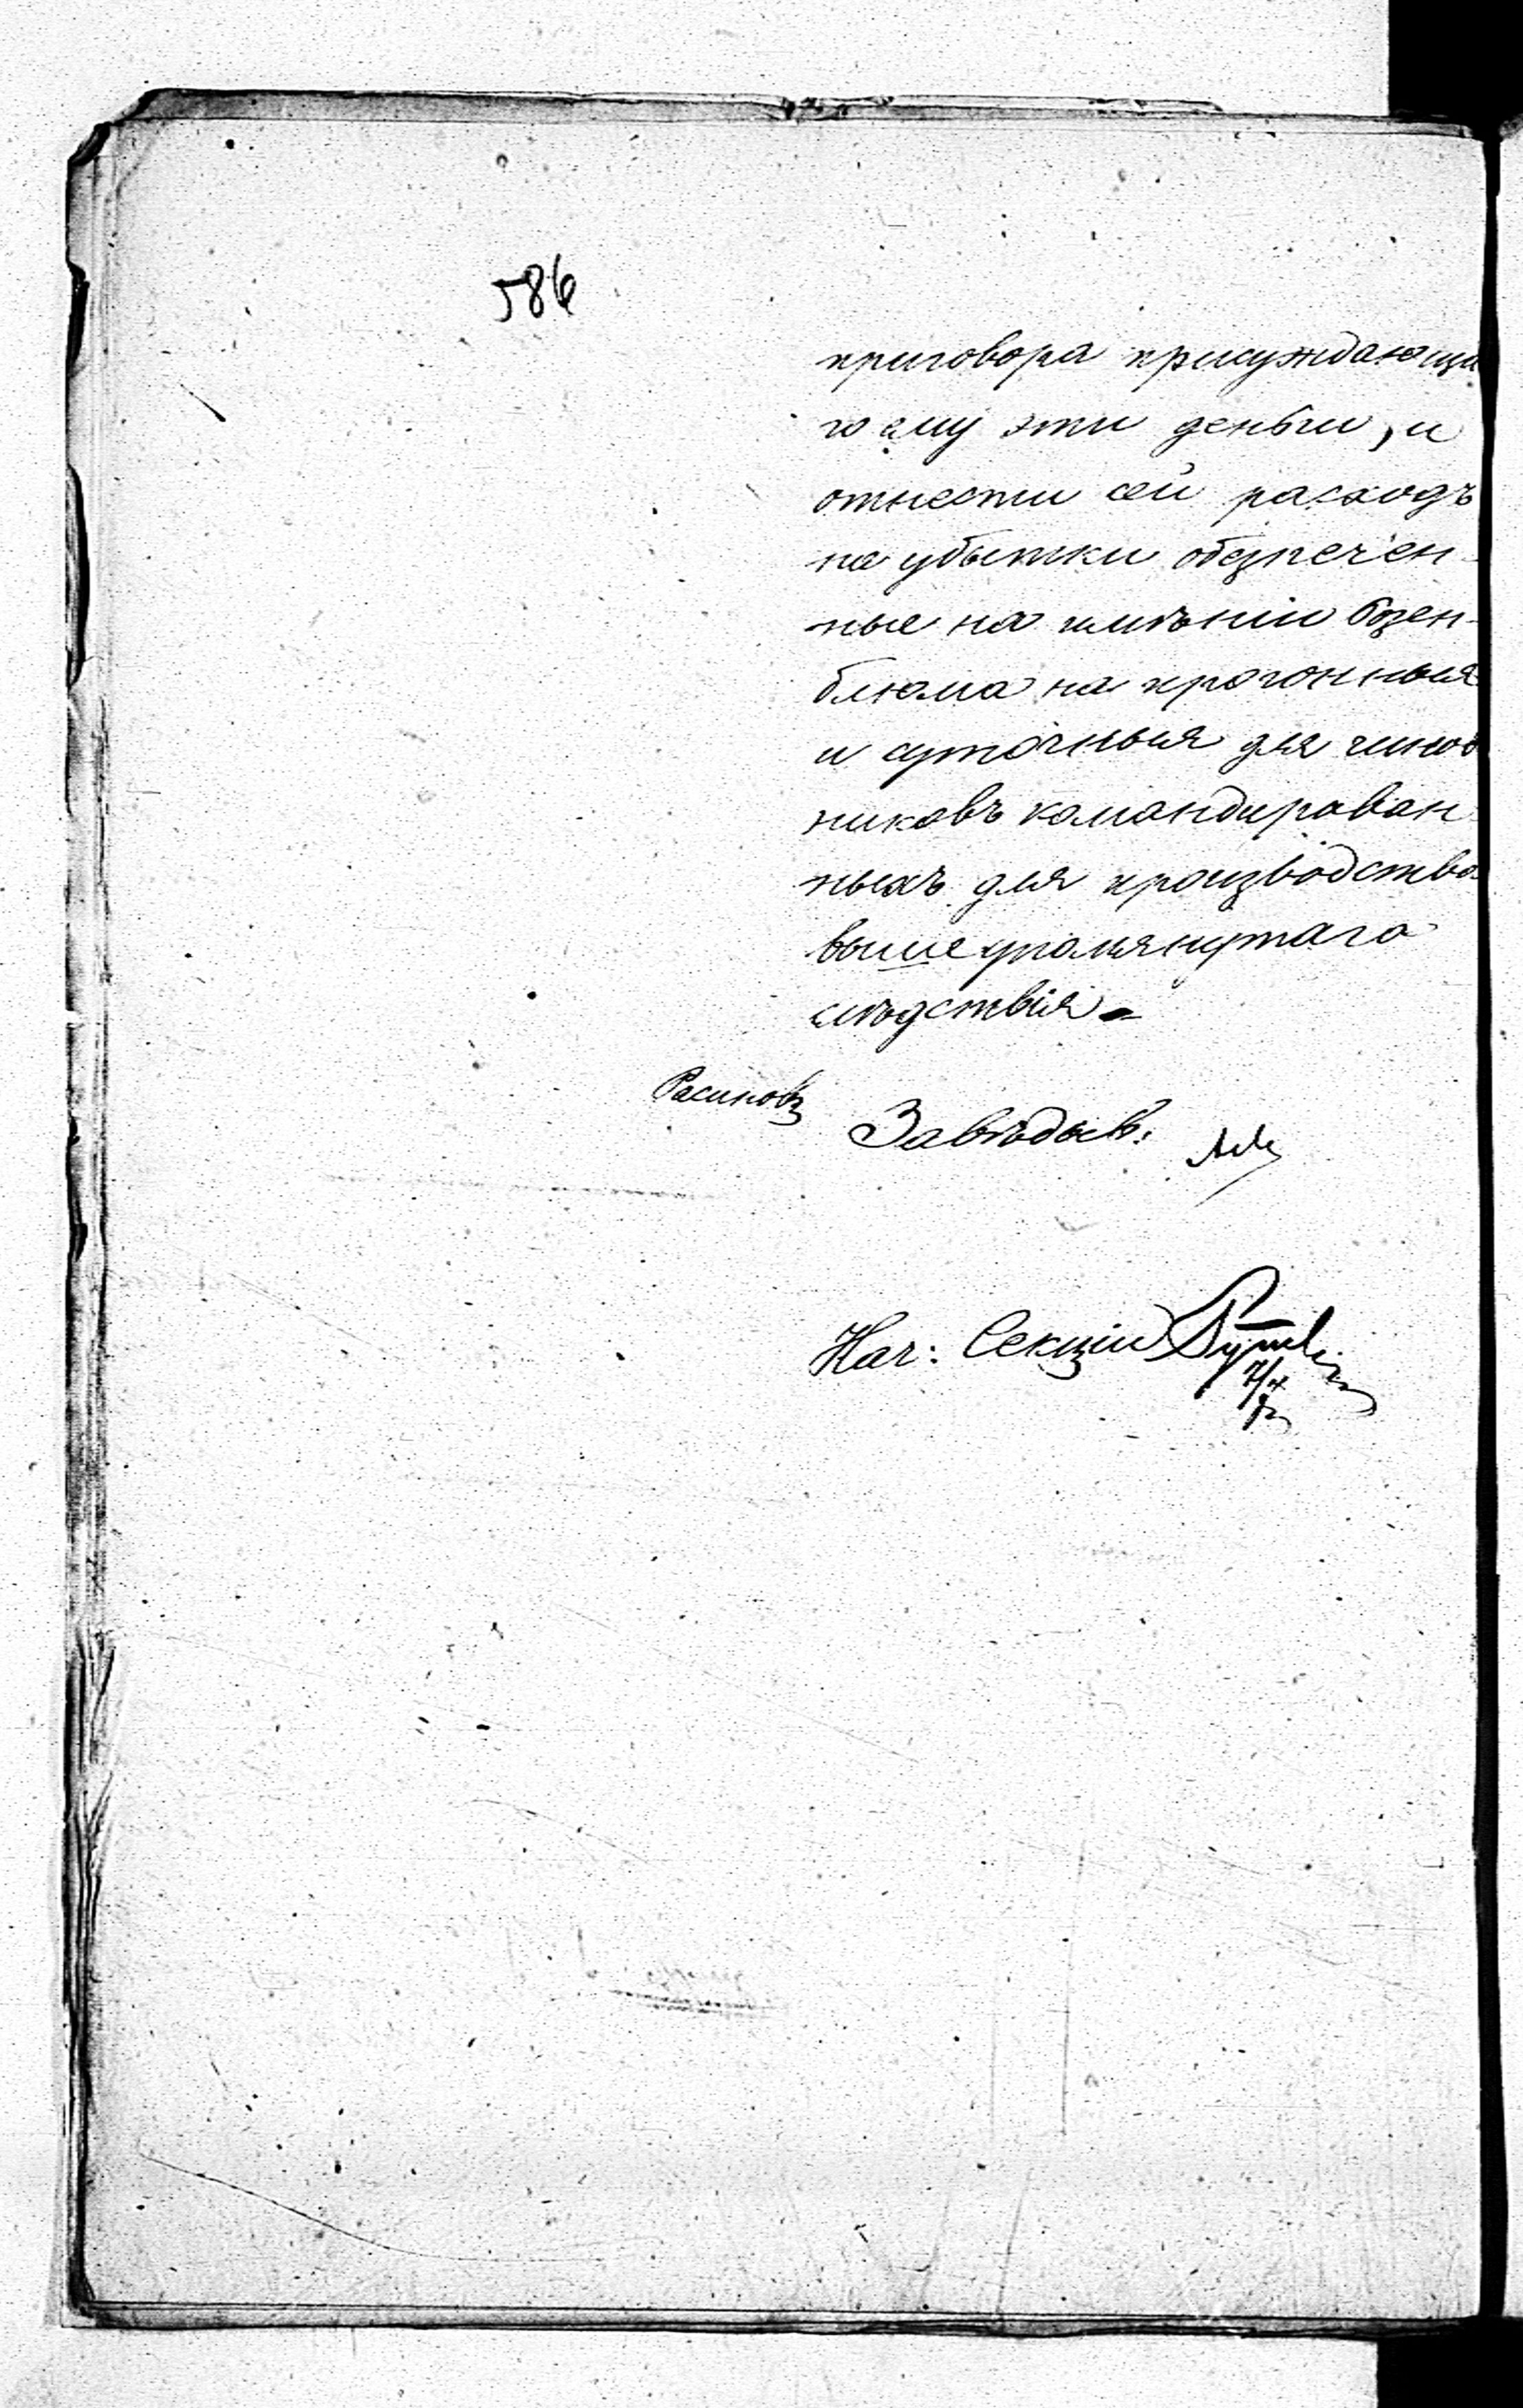 586
приговора присуждающа
го ему эти деньги, и
отнести сей расходъ
на убытки обезпечен-
ные на имѣніи Розен-
блюма на прогонныя
и суточныя для чинов
никовъ командирован
ныхъ для производства
вышеупомянутаго
слѣдствія
Завѣдыв:
Нач: Секціи